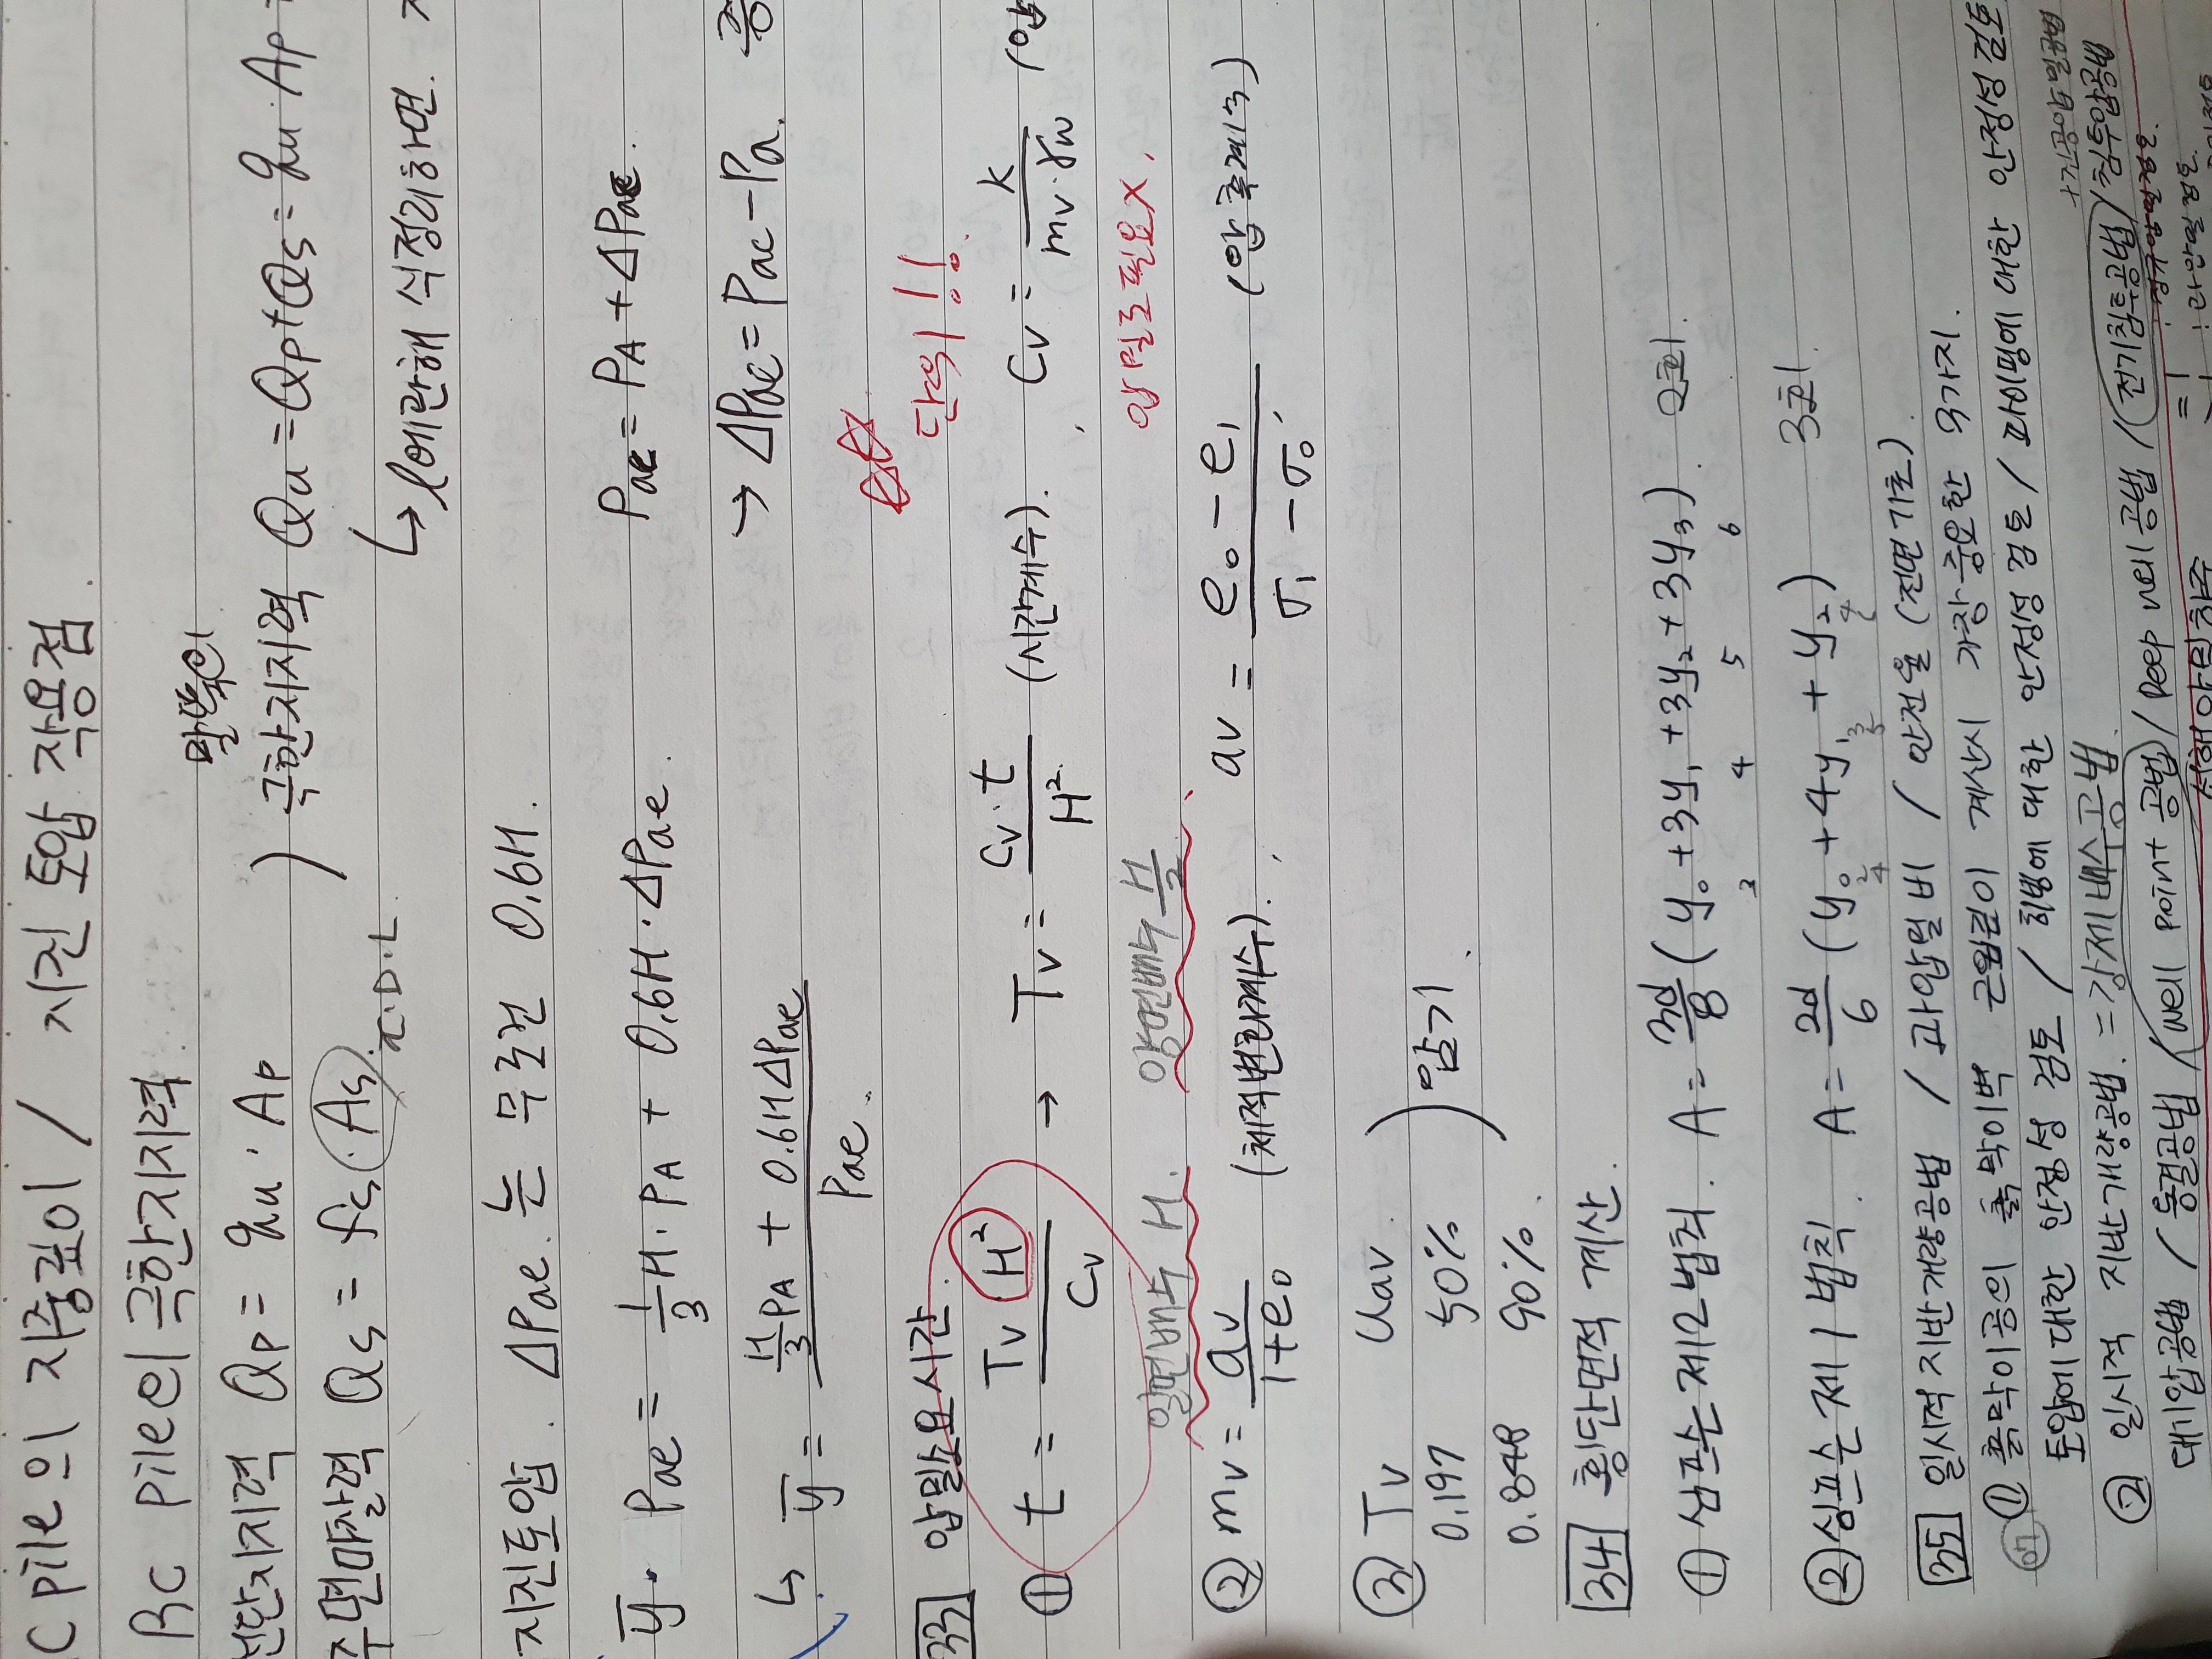 C Pile의 지중깊이 / 지진 토압 작용점.
RC Pile의 극한지지력
말뚝의
선단지지력 Qp = qu · Ap ) 극한지지력 Qu = Qp + Qs = qu · Ap
주면마찰력 Qs = fs · As
π·D·L
↳ l에 관해 식정리하면.
지진토압. ΔPae 는 무조건 0.6H.
ȳ · Pae = 1/3 H · PA + 0.6H · ΔPae. Pae = PA + ΔPae.
↳ ȳ = (H/3 PA + 0.6H ΔPae) / Pae. → ΔPae = Pae - Pa.
33 압밀소요시간. 단위!!
① t = Tv H² / Cv → Tv = Cv · t / H² (시간계수). , Cv = k / mv · γw
일면배수 H. 양면배수 H/2 압밀도필요X.
② mv = av / 1+e₀ (체적변화계수). , av = e₀ - e₁ / σ₁ - σ₀ (압축계수)
③ Tv Uav
0.197 50%
0.848 90% . ) 암기
34 횡단면적 계산.
① 심프슨 제2법칙. A = 3d/8 (y₀ + 3y₁ + 3y₂ + 3y₃) 2회.
3 4 5 6
② 심프슨 제1법칙. A = 2d/6 (y₀ + 4y₁ + y₂) 3회.
35 일시적 지반개량공법 / 과압밀비 / 안전율 (전면기초)
① 흙막이공의 흙막이벽 근입깊이 계산시 가장 중요한 3가지.
토압에 대한 안정성 검토 / 히빙에 대한 안정성 검토 / 파이핑에 대한 안정성 검토
② 일시적 지반개량공법. = 강제배수공법. +진공압밀공법
대기압공법 / 동결공법 / well point 공법 / Deep well 공법 / 전기침투공법 / 침투압공법